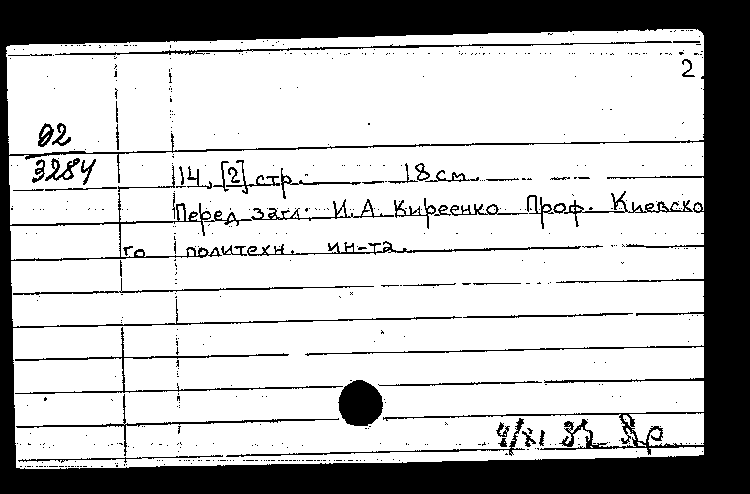 2.
92
3284
14, [2] стр. 18 см.
Перед загл: И.А. Киреенко Проф. Киевско
го политехн. ин-та.
4/XI